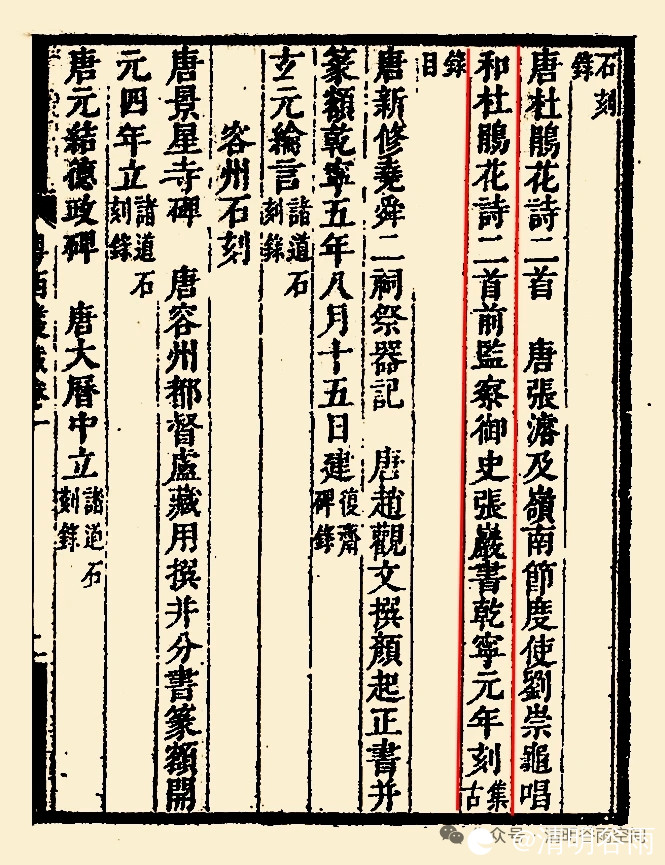 石刻錄
唐杜鵑花詩二首　唐張濬及嶺南節度使劉崇龜唱
和杜鵑花詩二首前監察御史張巖書乾寧元年刻集古
錄目
唐新修堯舜二祠祭器記　唐趙觀文撰顏起正書并
篆額乾寧五年八月十五日建復齋碑錄
玄元綸言諸道石刻錄
容州石刻
唐景星寺碑　唐容州都督盧藏用撰并分書篆額開
元四年立諸道石刻錄
唐元結德政碑　唐大曆中立諸道石刻錄